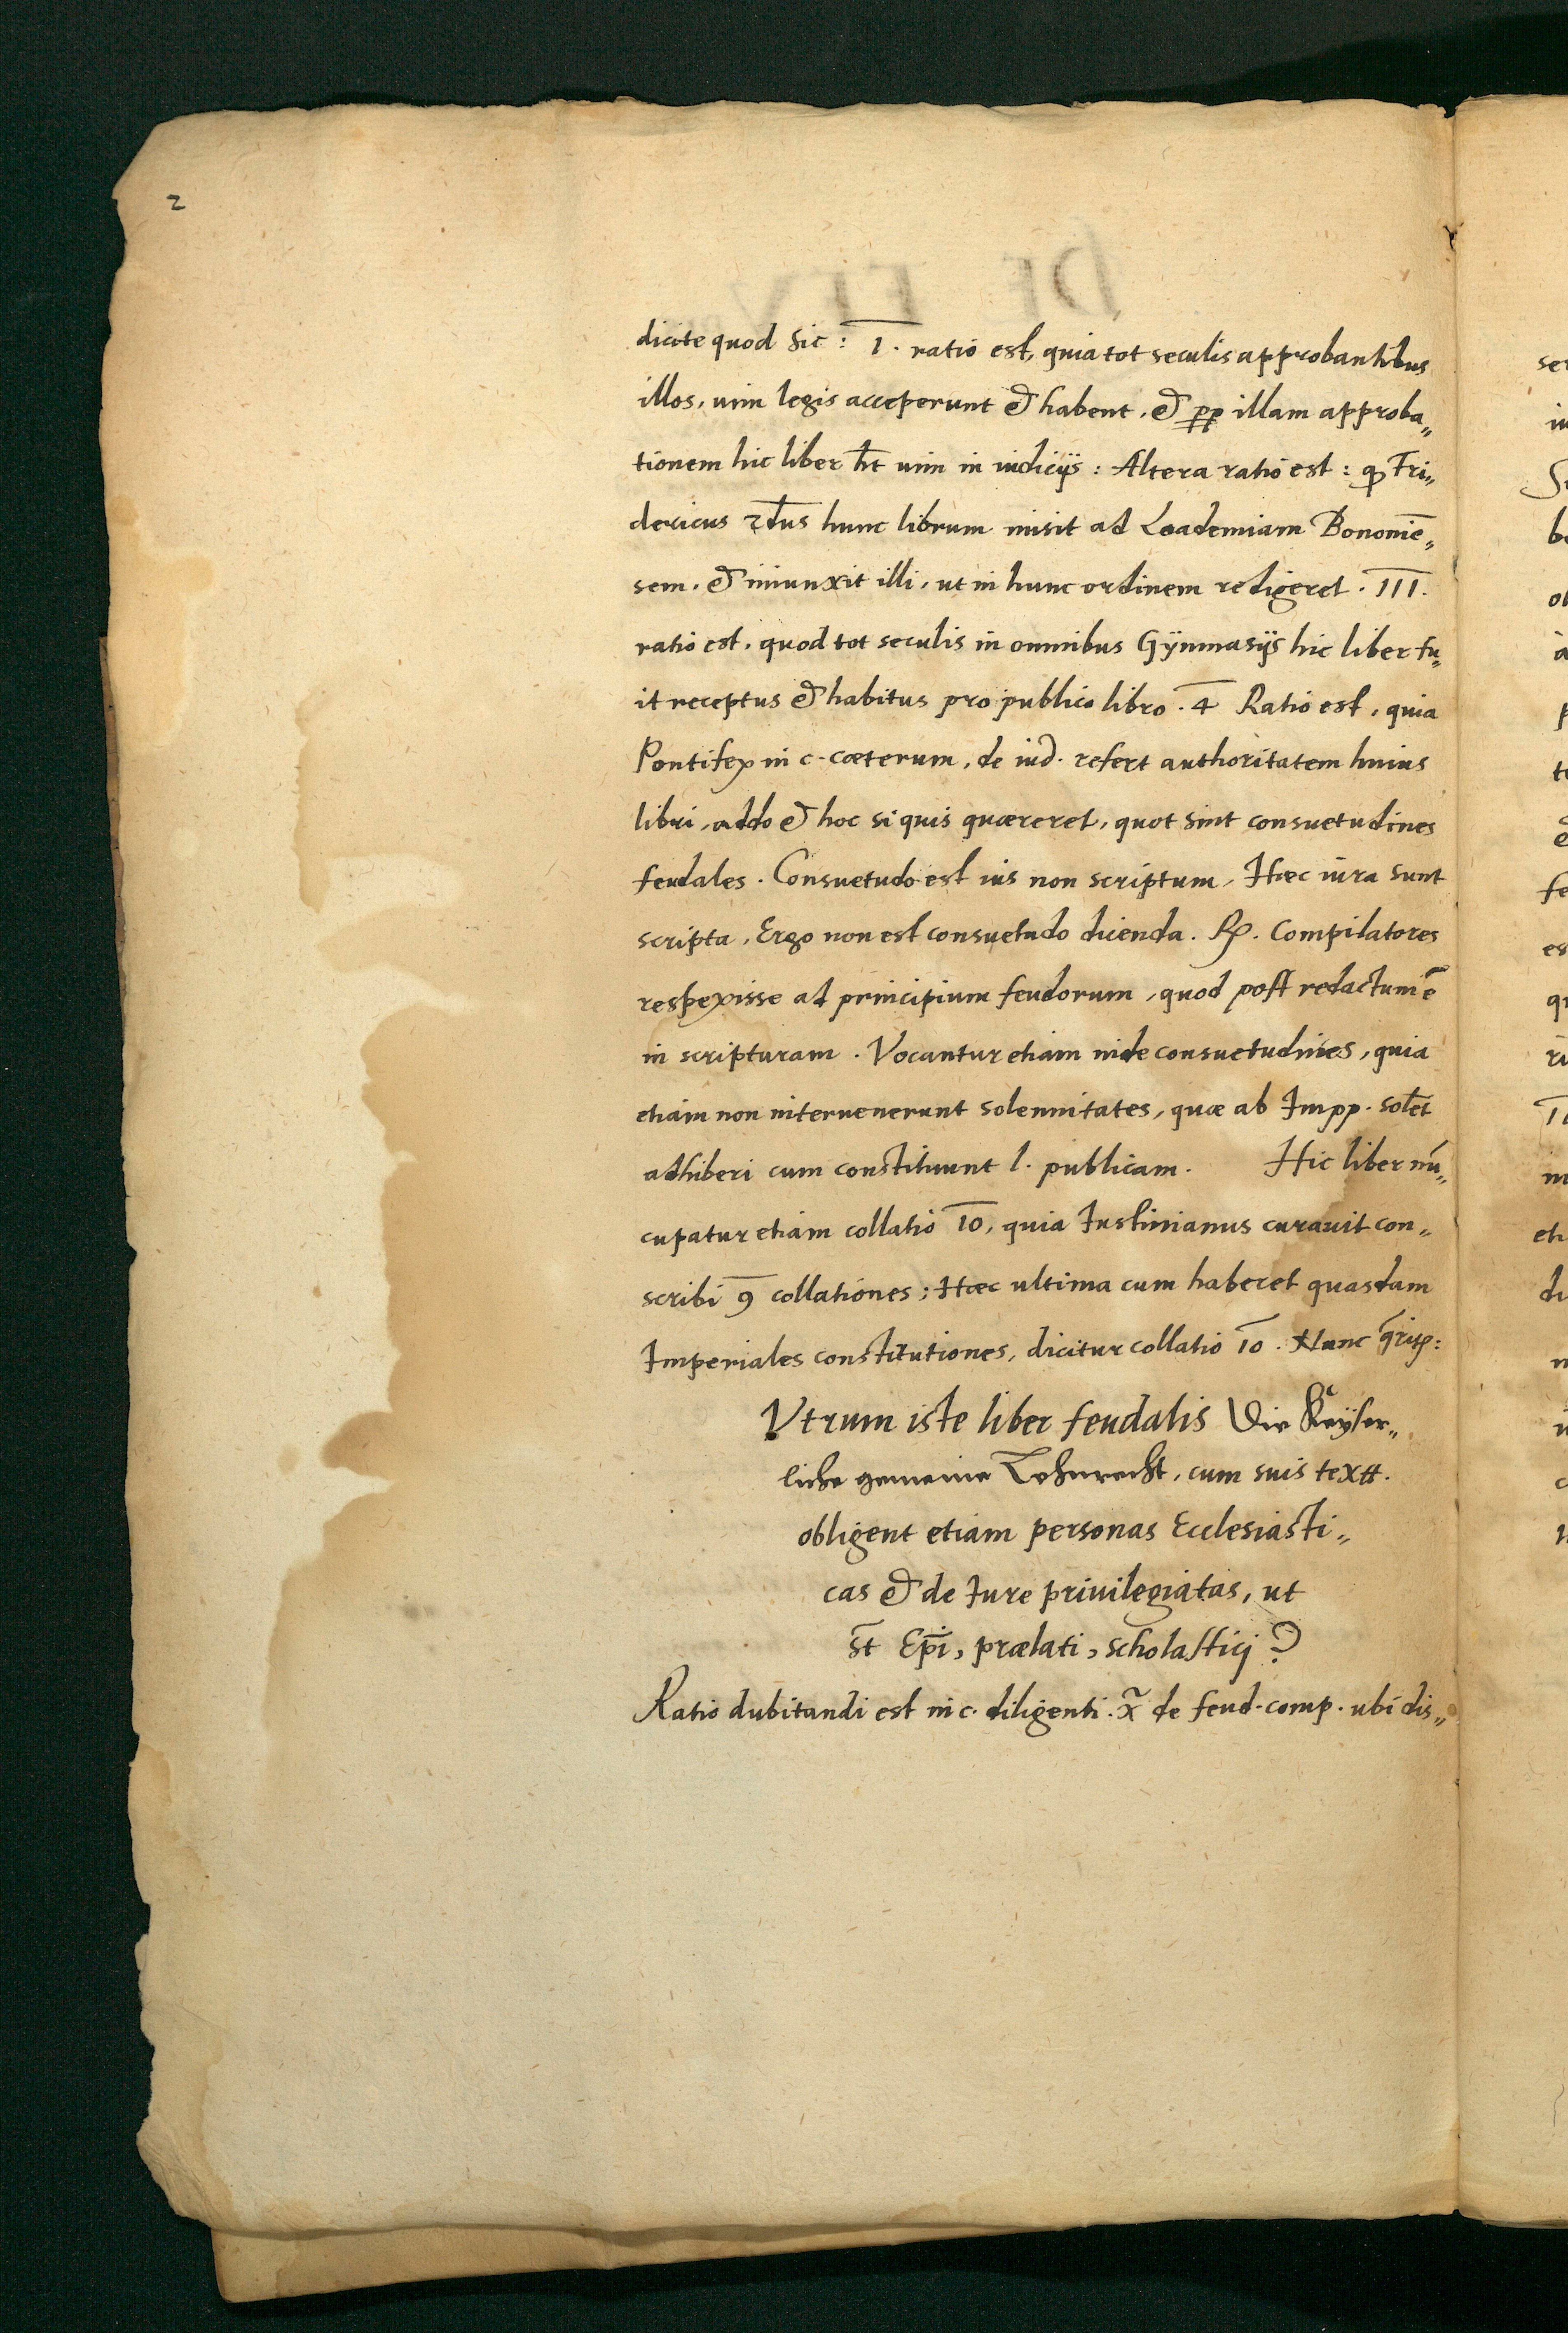 2
dicite quod sic: I. ratio est, quia tot seculis approbantibus
illos, uim legis acceperunt et habent, et ꝓp illam approba„
tionem hic liber ht̄ uim in iudicijs: Altera ratio est: ꝙ Fri„
dericus 2dus hunc librum misit ad Academiam Bononiē„
sem, et iniunxit illi, ut in hunc ordinem redigeret. III.
ratio est, quod tot seculis in omnibus Gÿmnasijs hic liber fu„
it receptus et habitus pro publico libro. 4 Ratio est, quia
Pontifex in c. cæterum, de iud. refert authoritatem huius
libri, addo et hoc si quis quæreret, quot sint consuetudines
feudales. Consuetudo est ius non scriptum, Hæc iura sunt
scripta, Ergo non est consuetudo dicenda. R. Compilatores
respexisse ad principium feudorum, quod post redactum ē
in scripturam. Vocantur etiam inde consuetudines, quia
etiam non interuenerunt solennitates, quæ ab Impp. solēt
adhiberi cum constituunt l. publicam. Hic liber nū„
cupatur etiam collatio 10, quia Iustinianus curauit con„
scribi 9 collationes; Hæc ultima cum haberet quasdam
Imperiales constitutiones, dicitur collatio 10. Nunc
Vtrum iste liber feudalis Die Keÿser„
liche gemeine Lehnrecht, cum suis textt.
obligent etiam personas Ecclesiasti„
cas et de Iure priuilegiatas, ut
st̄ Ep̄i, prælati, scholastici?
Ratio dubitandi est in c. diligenti. x̃ de feud. comp. ubi dis„